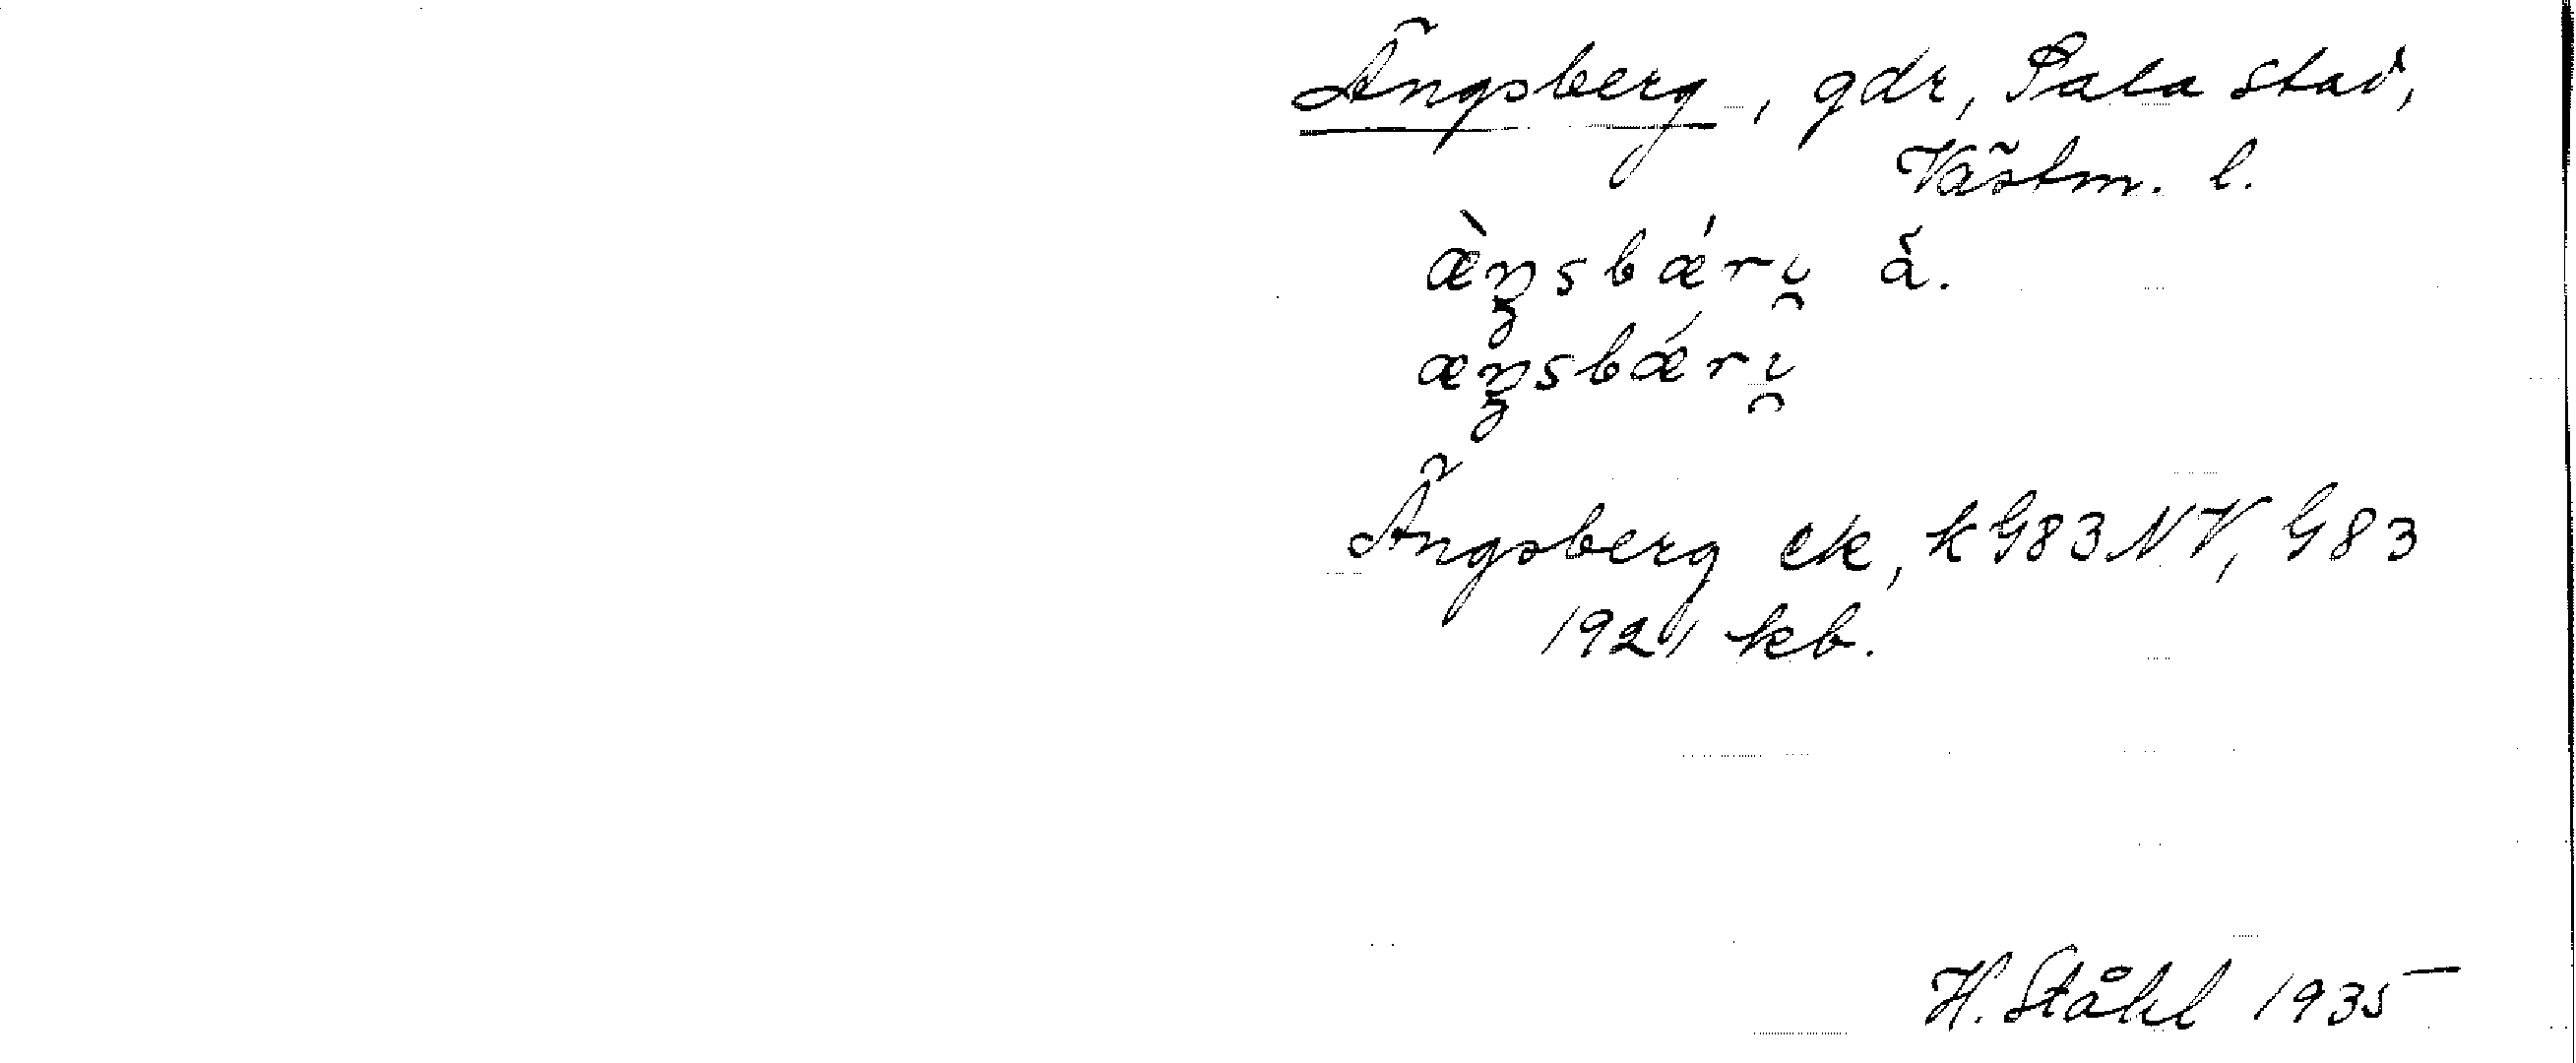 Ängsberg, gdr, Sala stad,
Västm. l.
æ̀ŋsbǽri̯ ä.
æŋsbǽri̯
Ängsberg ek, k G83 NV, G83
1921 kb.
H. Ståhl 1935